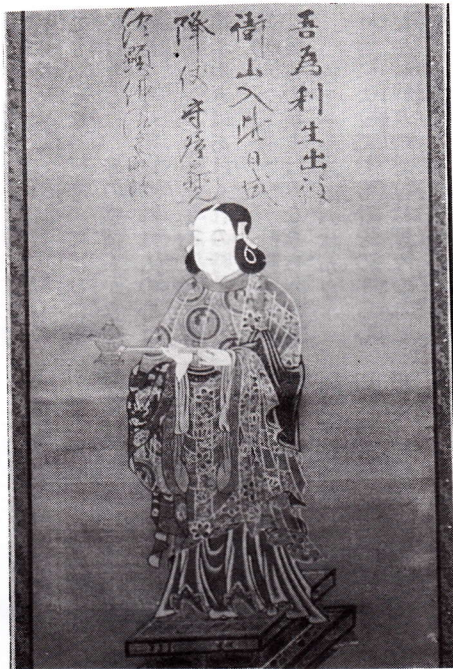 吾為利生出彼
衡山入此日域
降伏守屋邪見
終顯佛法